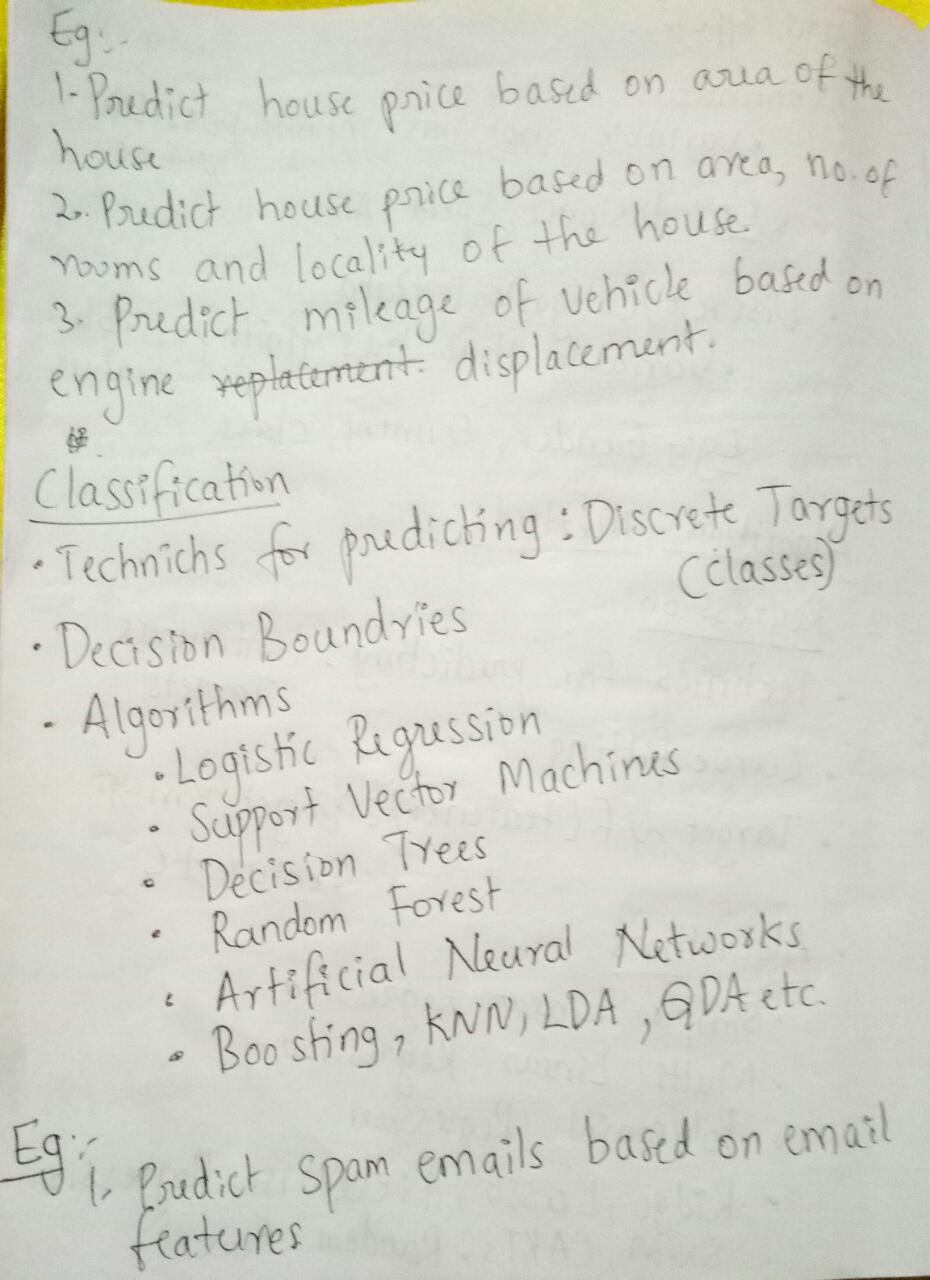 Eg:-
1- Predict house price based on area of the
house
2. Predict house price based on area, no. of
rooms and locality of the house
3. Predict mileage of vehicle based on
engine replatement. displacement.
Classification
• Technichs for predicting : Discrete Targets
(classes)
• Decision Boundries
• Algorithms
• Logistic Regression
• Support Vector Machines
• Decision Trees
• Random Forest
• Artificial Neural Networks
• Boosting, KNN, LDA, QDA etc.
Eg:-
1. Predict Spam emails based on email
features